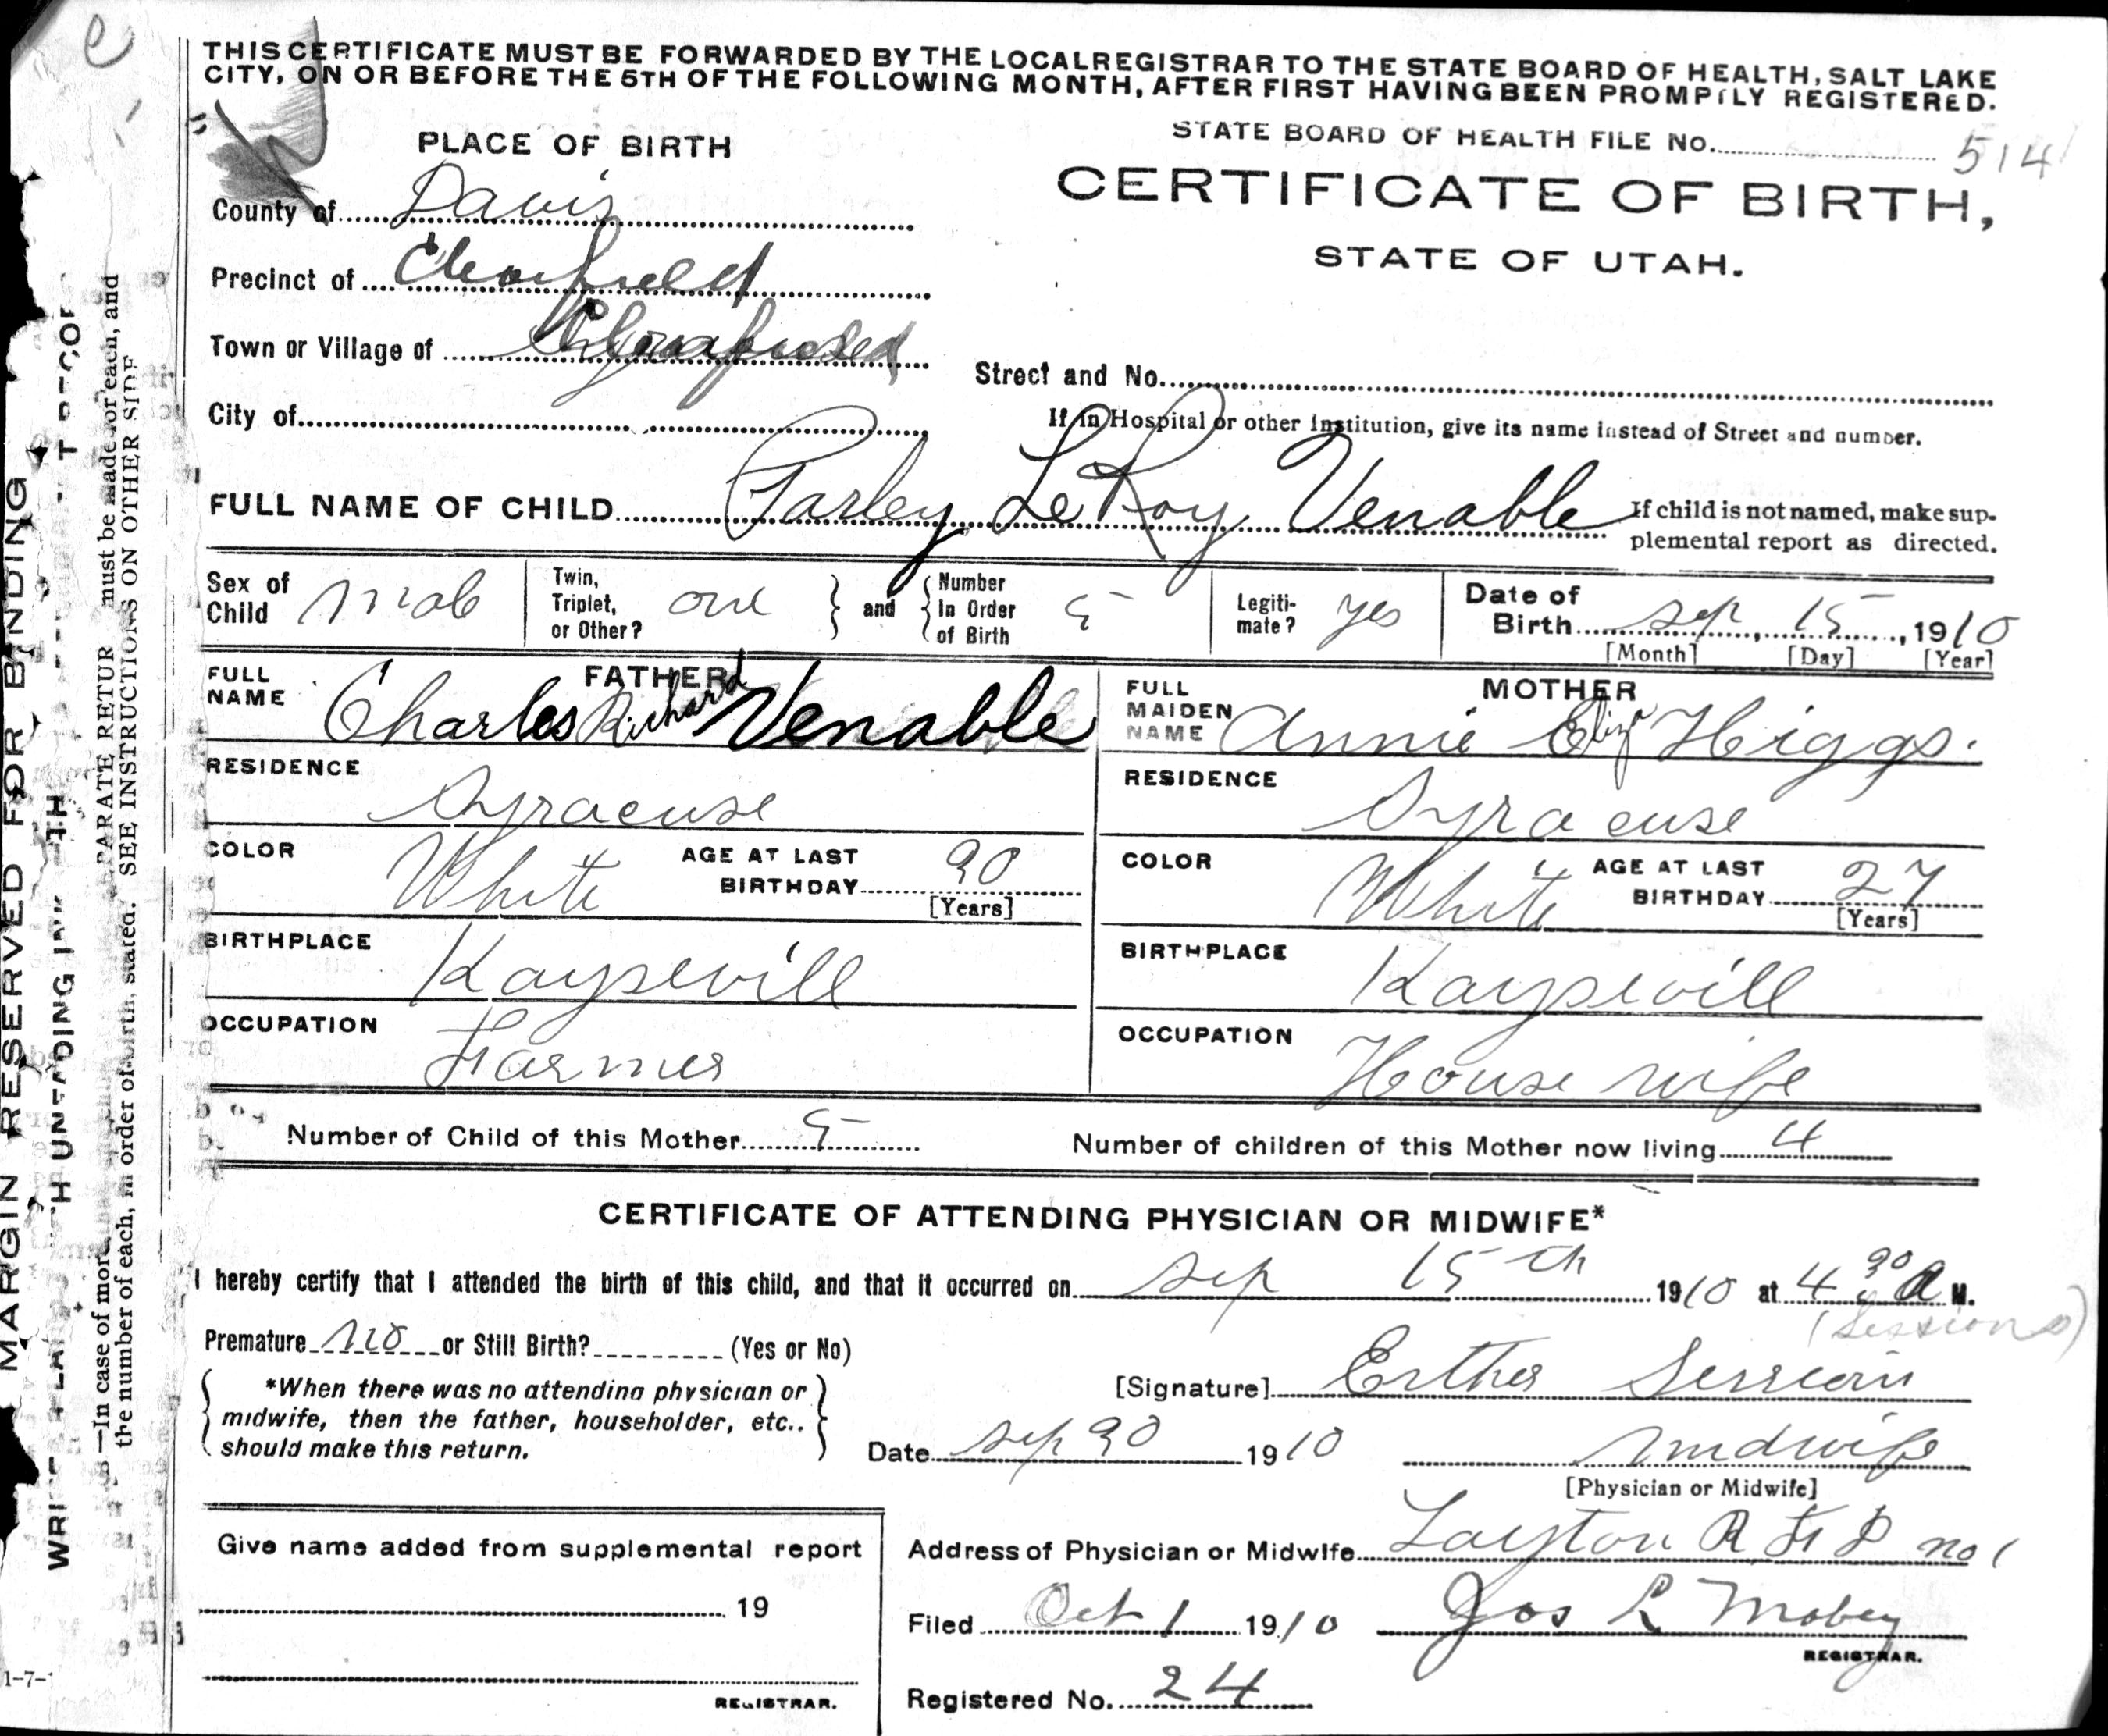 THIS CERTIFICATE MUST BE FORWARDED BY THE LOCAL REGISTRAR TO THE STATE BOARD OF HEALTH, SALT LAKE
CITY, ON OR BEFORE THE 5TH OF THE FOLLOWING MONTH, AFTER FIRST HAVING BEEN PROMPTLY REGISTERED.
STATE BOARD OF HEALTH FILE No. 514
PLACE OF BIRTH
CERTIFICATE OF BIRTH,
STATE OF UTAH.
County of Davis
Precinct of Clearfield
Town or Village of
Street and No.
City of
If in Hospital or other institution, give its name instead of Street and number.
FULL NAME OF CHILD Parley LeRoy Venable
If child is not named, make sup-
plemental report as directed.
Sex of Child Male
Twin, Triplet, or Other? one
and
Number In Order of Birth 5
Legiti-mate? yes
Date of Birth Sep, 15, 1910
[Month] [Day] [Year]
FATHER
FULL NAME Charles Richard Venable
RESIDENCE Syracuse
COLOR White AGE AT LAST BIRTHDAY 30 [Years]
BIRTHPLACE Kaysevill
OCCUPATION Farmer
MOTHER
FULL MAIDEN NAME Annie Eliza Higgs.
RESIDENCE Syracuse
COLOR White AGE AT LAST BIRTHDAY 27 [Years]
BIRTHPLACE Kaysevill
OCCUPATION House wife
Number of Child of this Mother 5 Number of children of this Mother now living 4
CERTIFICATE OF ATTENDING PHYSICIAN OR MIDWIFE*
I hereby certify that I attended the birth of this child, and that it occurred on Sep 15th 1910 at 4 30 A M.
(Sessions)
Premature no or Still Birth? (Yes or No)
*When there was no attending physician or
midwife, then the father, householder, etc..
should make this return.
[Signature] Esther Session
Date Sep 30 1910 Midwife
[Physician or Midwife]
Address of Physician or Midwife Layton R F D no 1
Give name added from supplemental report
19
REGISTRAR.
Filed Oct 1 1910 Jos L Mabey
REGISTRAR.
Registered No. 24
MARGIN RESERVED FOR BINDING
SEE INSTRUCTIONS ON OTHER SIDE
must be made for each, and
the number of each, in order of birth, stated.
—In case of more
1-7-